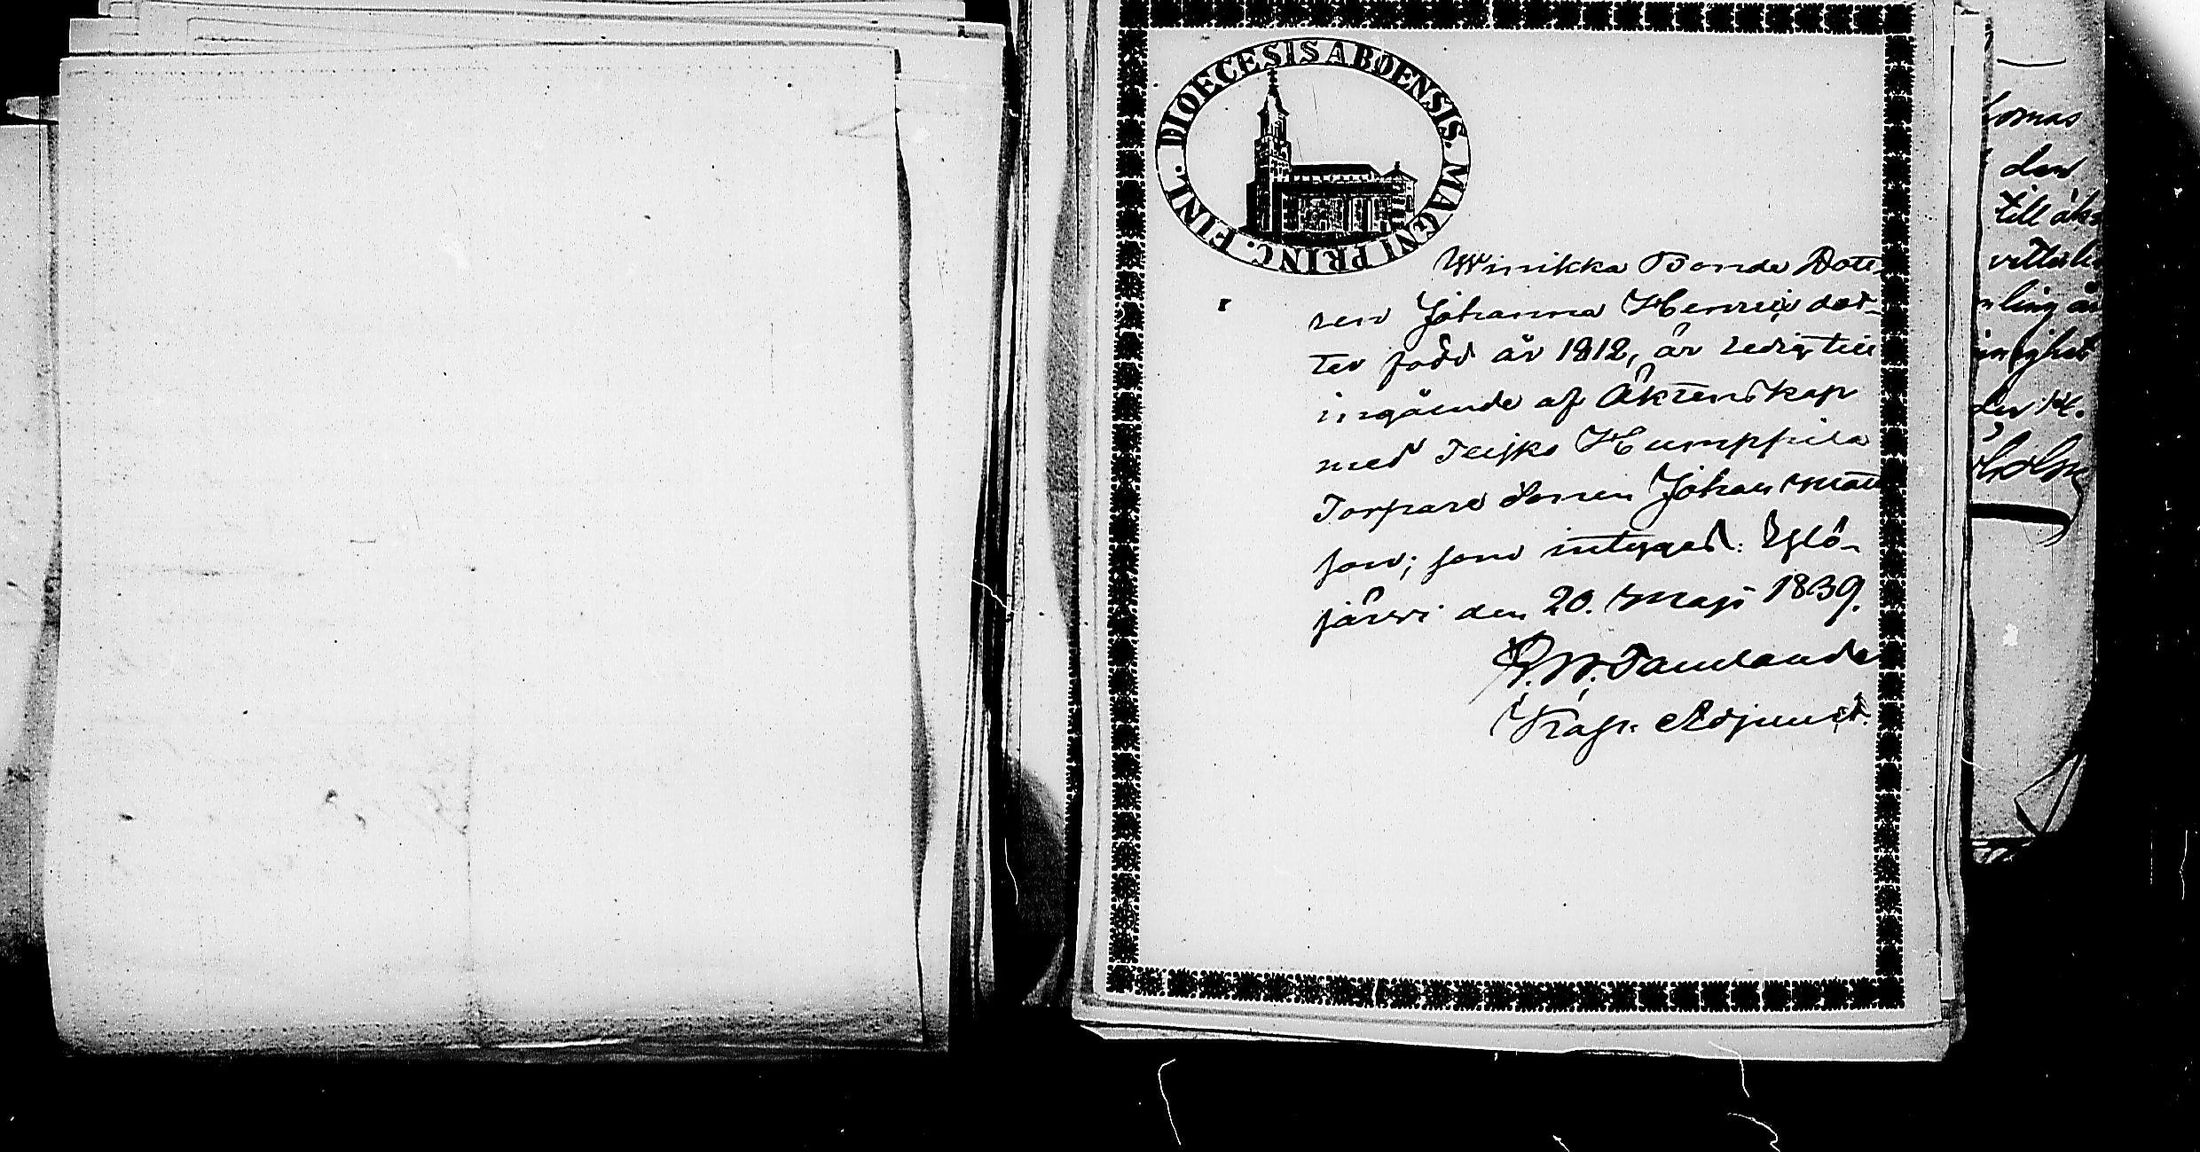 DIOECESIS ABOENSIS. MAGNI PRINC. FINL.
Winikka Bonde Dotte
ren Johanna Henricsdot-
ter född år 1812, är ledig till
ingående af Äktenskap
med Teisko Humppila
Torpare Sonen Johan Matts
son; som intygas: Ylö-
järvi den 20. Maji 1839.
Kapl. Adjunct.
omas
den
till äk
vitterli
nling
den 14.
holm